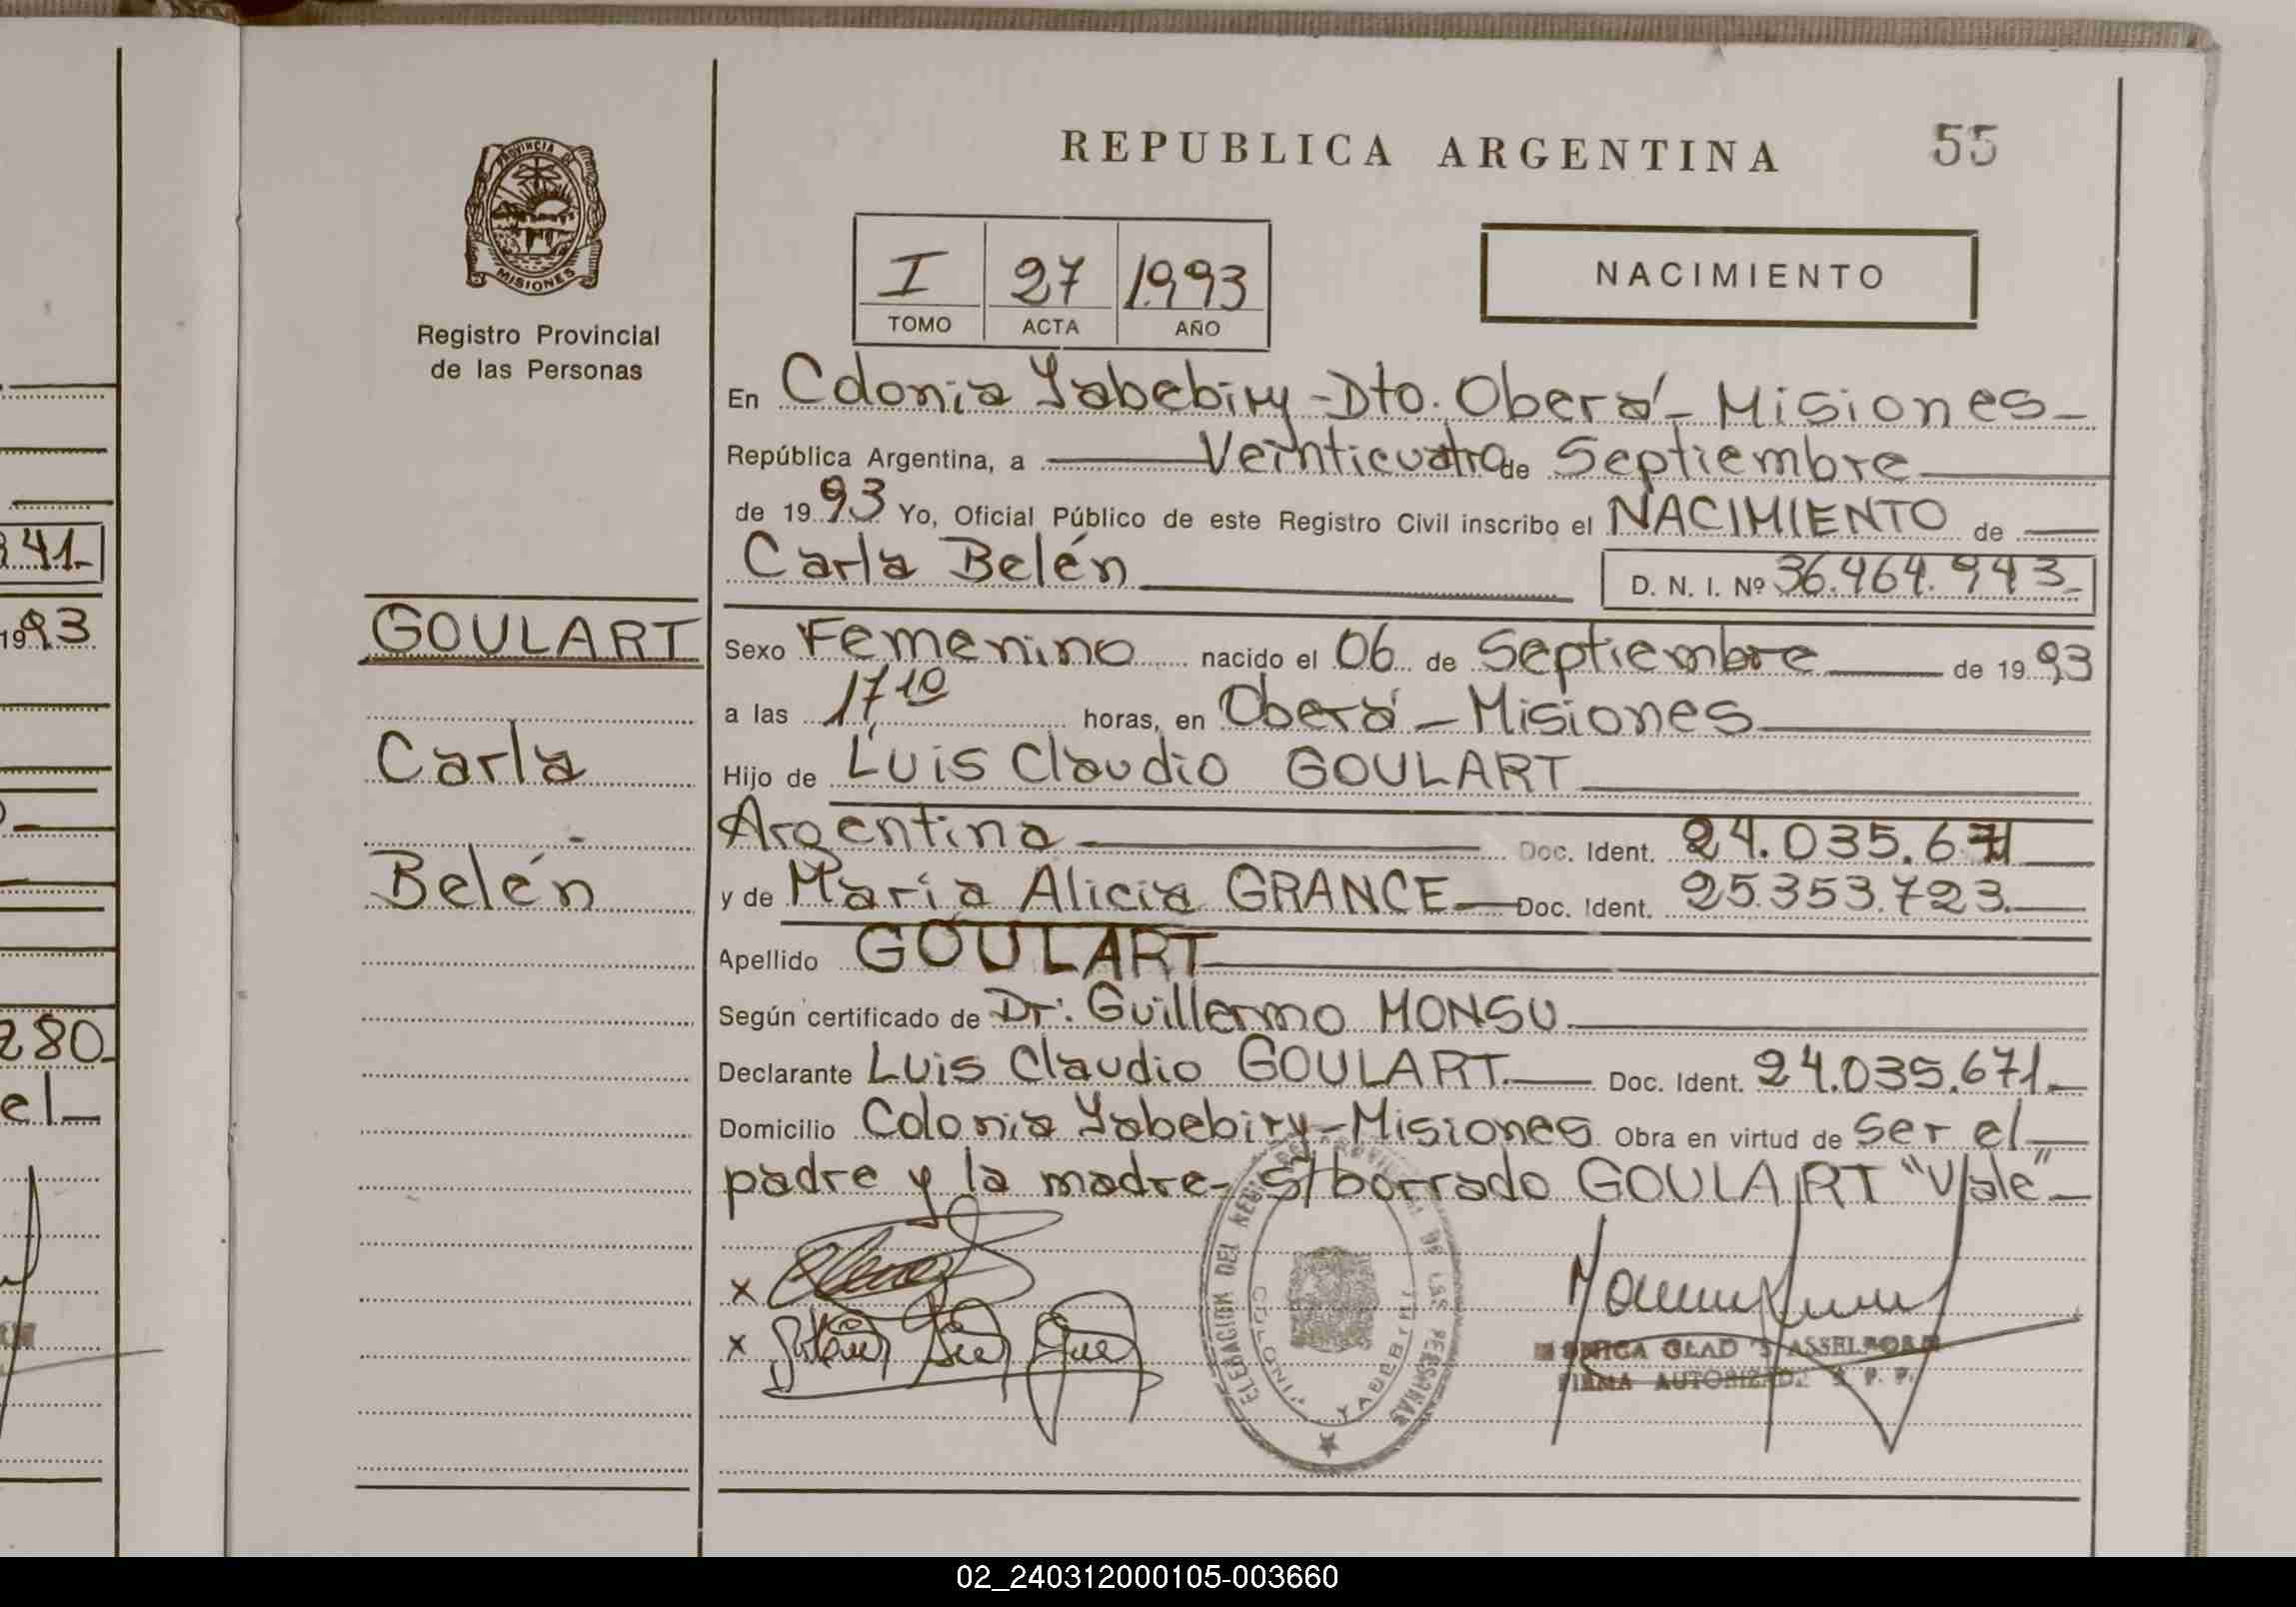 REPUBLICA ARGENTINA
55
PROVINCIA DE
MISIONES
Registro Provincial
de las Personas
I 27 1.993
TOMO ACTA AÑO
NACIMIENTO
En Colonia Yabebiry - Dto. Oberá - Misiones -
República Argentina, a Veinticuatro de Septiembre
de 19 93 Yo, Oficial Público de este Registro Civil inscribo el NACIMIENTO de
Carla Belén
D. N. I. Nº 36.464.943-
GOULART
Carla
Belén
Sexo Femenino nacido el 06 de Septiembre de 19 93
a las 17,10 horas, en Oberá - Misiones
Hijo de Luis Claudio GOULART
Argentina Doc. Ident. 24.035.671
y de María Alicia GRANCE Doc. Ident. 25.353.723.
Apellido GOULART
Según certificado de Dr. Guillermo MONSU
Declarante Luis Claudio GOULART Doc. Ident. 24.035.671.
Domicilio Colonia Yabebiry - Misiones Obra en virtud de ser el
padre y la madre - S/borrado GOULART "Vale" -
x
x
COLONIA YABEBIRI
DE LAS PERSONAS
FIRMA AUTORIZADA R. P. P.
41-
1993
280-
el-
02_240312000105-003660